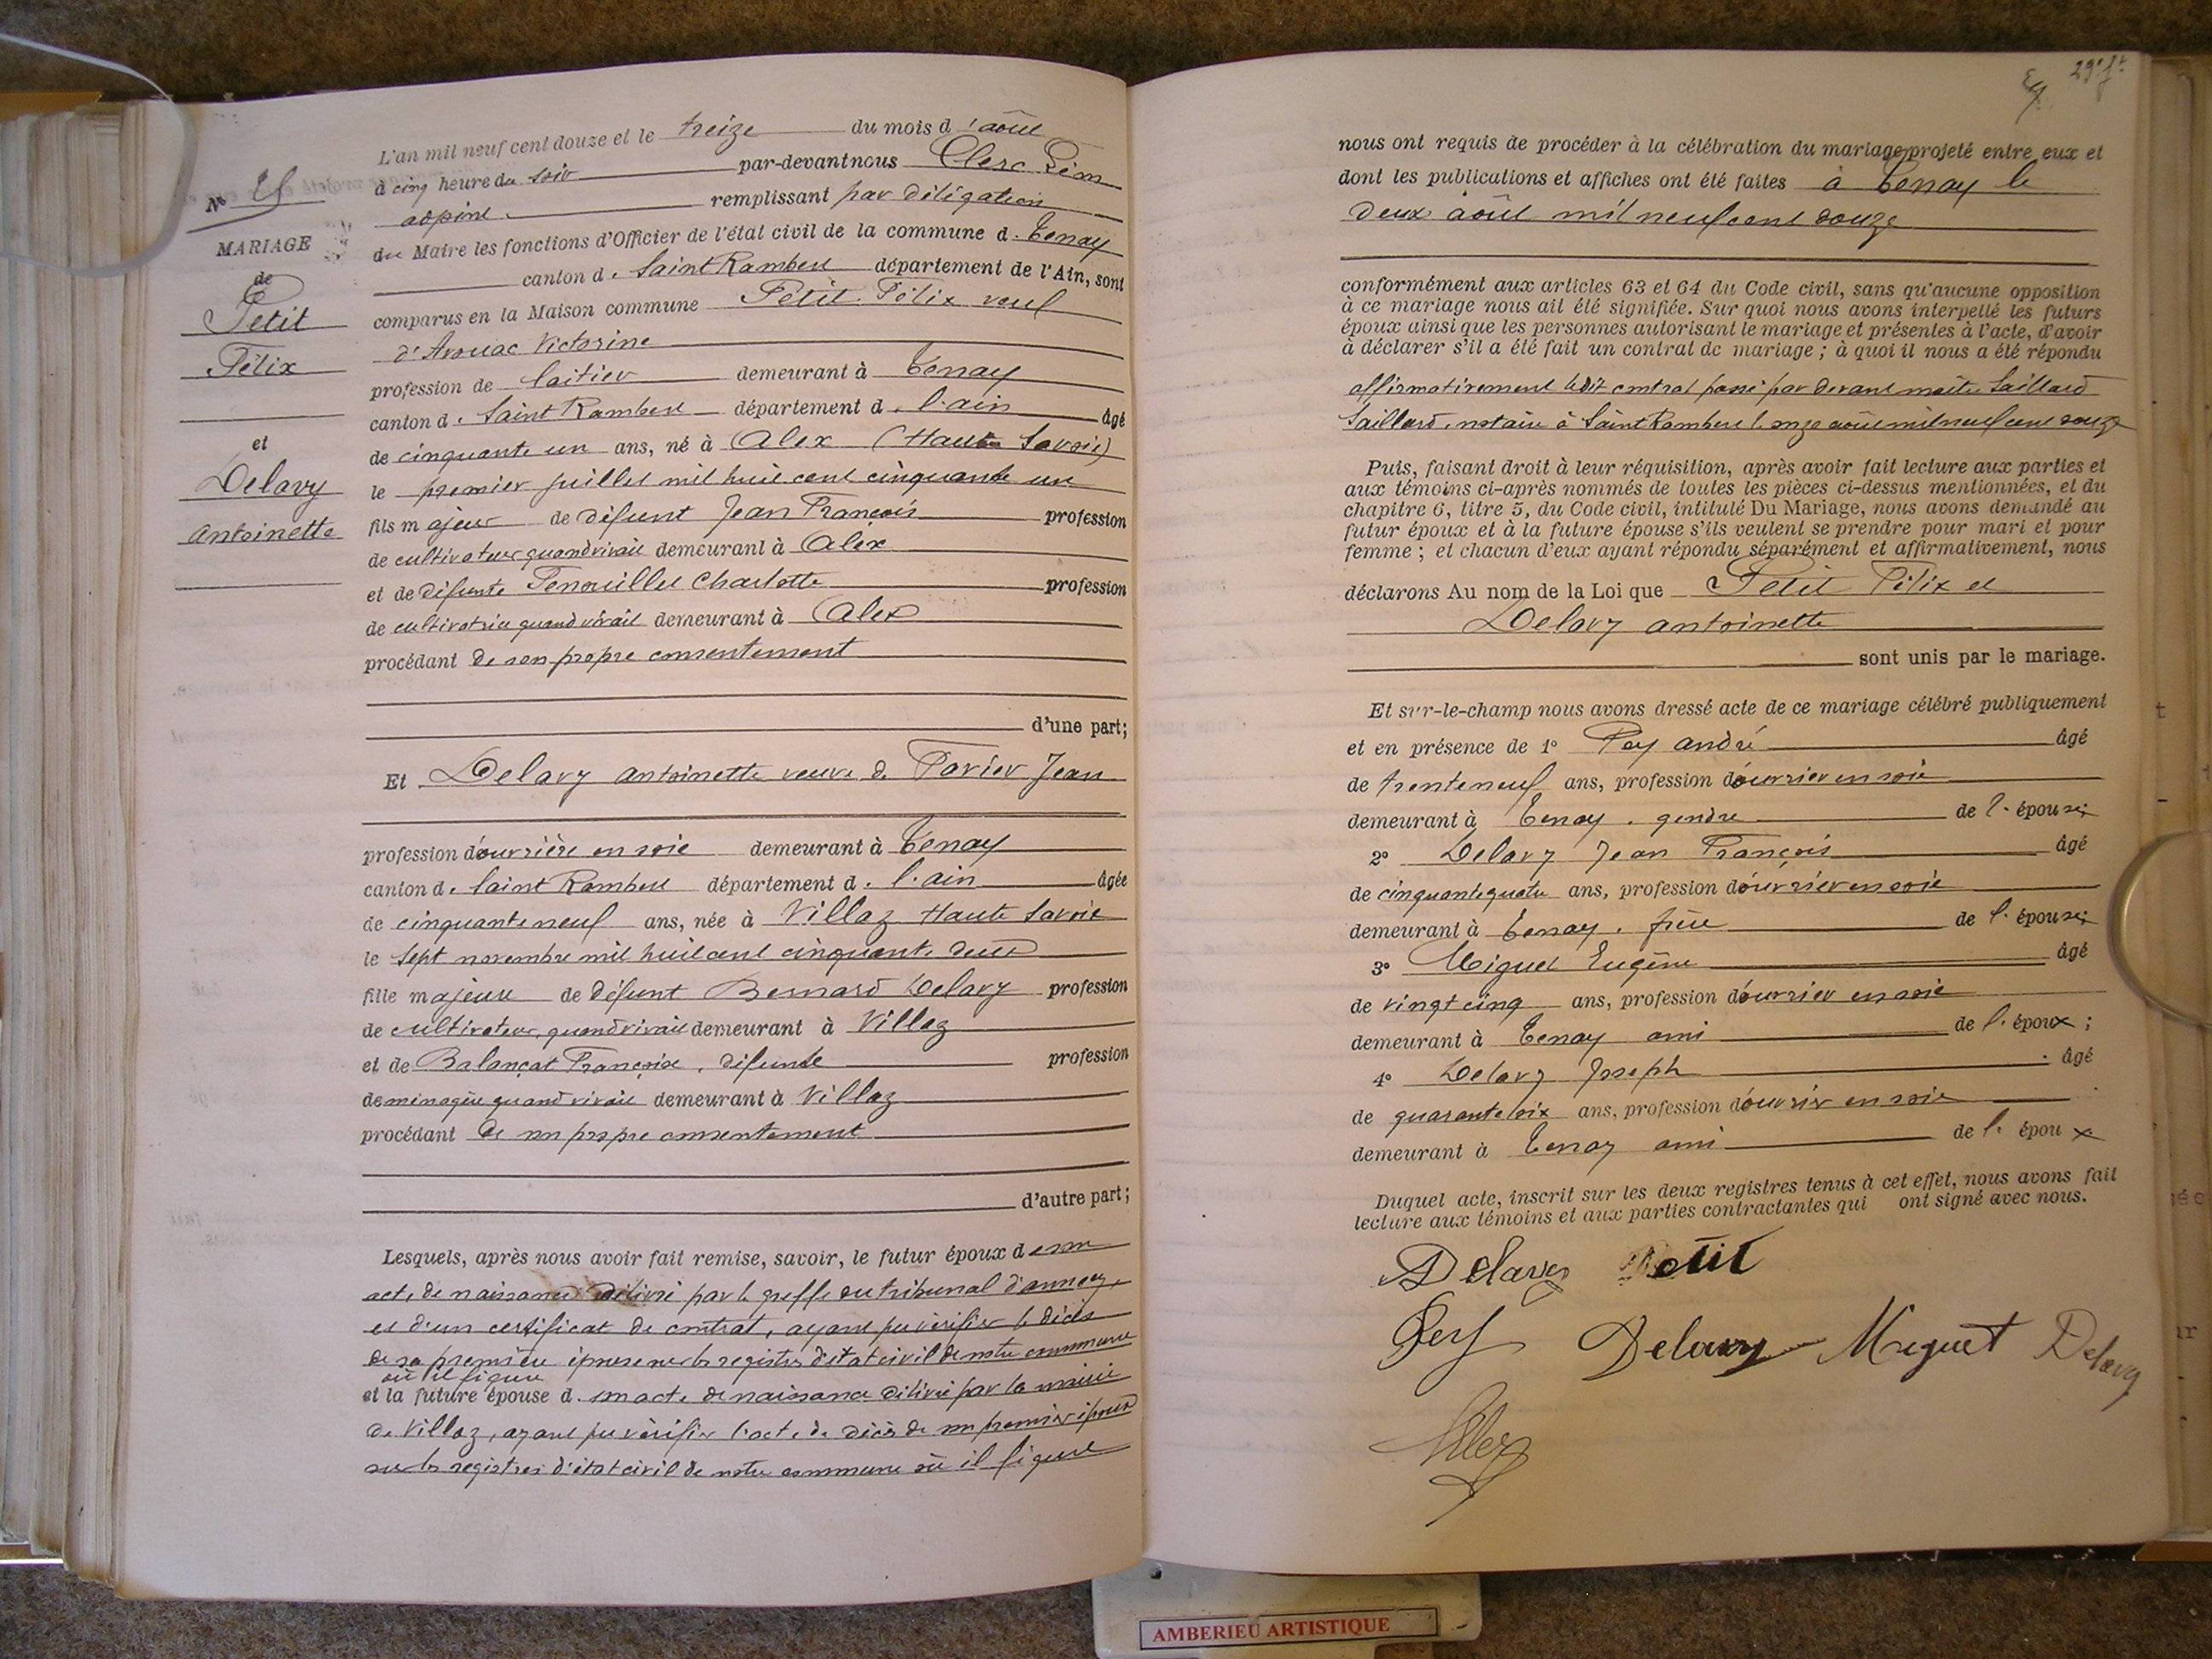 L'an mil neuf cent douze et le treize du mois d'août
à cinq heure du soir par-devant nous Clerc Léon
adjoint remplissant par déligation
du Maire les fonctions d'Officier de l'état civil de la commune de Tenay
canton de Saint Rambert département de l'Ain, sont
comparus en la Maison commune Petit Félix veuf
d'Avouac Victorine
profession de laitier demeurant à Tenay
canton de Saint Rambert département de l'ain âgé
de cinquante un ans, né à Alex (Haute Savoie)
le premier juillet mil huit cent cinquante un
fils majeur de défunt Jean François profession
de cultivateur quand vivait demeurant à Alex
et de défunte Fenouillet Charlotte profession
de cultivatrice quand vivait demeurant à Alex
procédant de son propre consentement
d'une part;
Et Delavy Antoinette veuve de Favier Jean
profession d'ouvrière en soie demeurant à Tenay
canton de Saint Rambert département de l'ain âgée
de cinquante neuf ans, née à Villaz Haute Savoie
le sept novembre mil huit cent cinquante deux
fille majeure de défunt Bernard Delavy profession
de cultivateur, quand vivait demeurant à Villaz
et de Balançat Françoise, défunte profession
de ménagère quand vivait demeurant à Villaz
procédant de son propre consentement
d'autre part;
Lesquels, après nous avoir fait remise, savoir, le futur époux de son
acte de naissance délivré par le greffe du tribunal d'annecy,
et d'un certificat de contrat, ayant pu vérifier le décès
de sa première épouse sur les registres d'état civil de notre commune
où il figure
et la future épouse de son acte de naissance délivré par la mairie
de Villaz, ayant pu vérifier l'acte de décès de son premier époux
sur les registres d'état civil de notre commune où il figure
N°
MARIAGE
de
Petit
Félix
et
Delavy
Antoinette
29e ft
nous ont requis de procéder à la célébration du mariage projeté entre eux et
dont les publications et affiches ont été faites à Tenay le
deux août mil neuf cent douze
conformément aux articles 63 et 64 du Code civil, sans qu'aucune opposition
à ce mariage nous ait été signifiée. Sur quoi nous avons interpellé les futurs
époux ainsi que les personnes autorisant le mariage et présentes à l'acte, d'avoir
à déclarer s'il a été fait un contrat de mariage ; à quoi il nous a été répondu
affirmativement ledit contrat passé par devant maître Saillard
Saillard, notaire à Saint Rambert le onze août mil neuf cent douze
Puis, faisant droit à leur réquisition, après avoir fait lecture aux parties et
aux témoins ci-après nommés de toutes les pièces ci-dessus mentionnées, et du
chapitre 6, titre 5, du Code civil, intitulé Du Mariage, nous avons demandé au
futur époux et à la future épouse s'ils veulent se prendre pour mari et pour
femme ; et chacun d'eux ayant répondu séparément et affirmativement, nous
déclarons Au nom de la Loi que Petit Félix et
Delavy antoinette
sont unis par le mariage.
Et sur-le-champ nous avons dressé acte de ce mariage célébré publiquement
et en présence de 1° Pey andré âgé
de trente neuf ans, profession d'ouvrier en soie
demeurant à Tenay, gendre de l'épouse;
2° Delavy Jean François âgé
de cinquante quatre ans, profession d'ouvrier en soie
demeurant à Tenay, frère de l'épouse;
3° Miguet Eugène âgé
de vingt cinq ans, profession d'ouvrier en soie
demeurant à Tenay ami de l'époux;
4° Delavy Joseph âgé
de quarante six ans, profession d'ouvrier en soie
demeurant à Tenay ami de l'époux
Duquel acte, inscrit sur les deux registres tenus à cet effet, nous avons fait
lecture aux témoins et aux parties contractantes qui ont signé avec nous.
Delavy Petit
Pey Delavy Miguet Delavy
AMBERIEU ARTISTIQUE